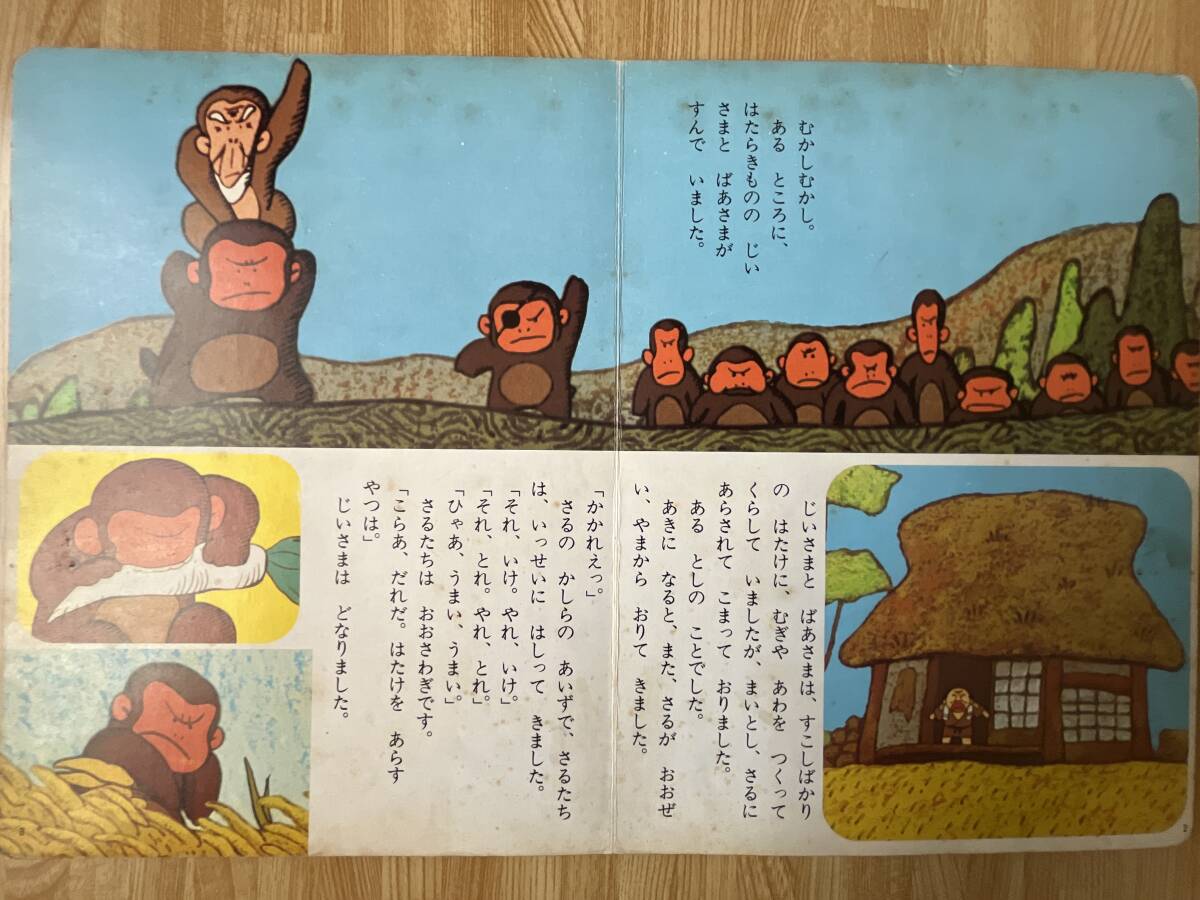 むかしむかし。
ある ところに、
はたらきものの じい
さまと ばあさまが
すんで いました。
じいさまと ばあさまは、すこしばかり
の はたけに、むぎや あわを つくって
くらして いましたが、まいとし、さるに
あらされて こまって おりました。
ある としの ことでした。
あきに なると、また、さるが おおぜ
い、やまから おりて きました。
2
「かかれえっ。」
さるの かしらの あいずで、さるたち
は、いっせいに はしって きました。
「それ、いけ。やれ、いけ。」
「それ、とれ。やれ、とれ。」
「ひゃあ、うまい、うまい。」
さるたちは おおさわぎです。
「こらあ、だれだ。はたけを あらす
やつは。」
じいさまは どなりました。
3